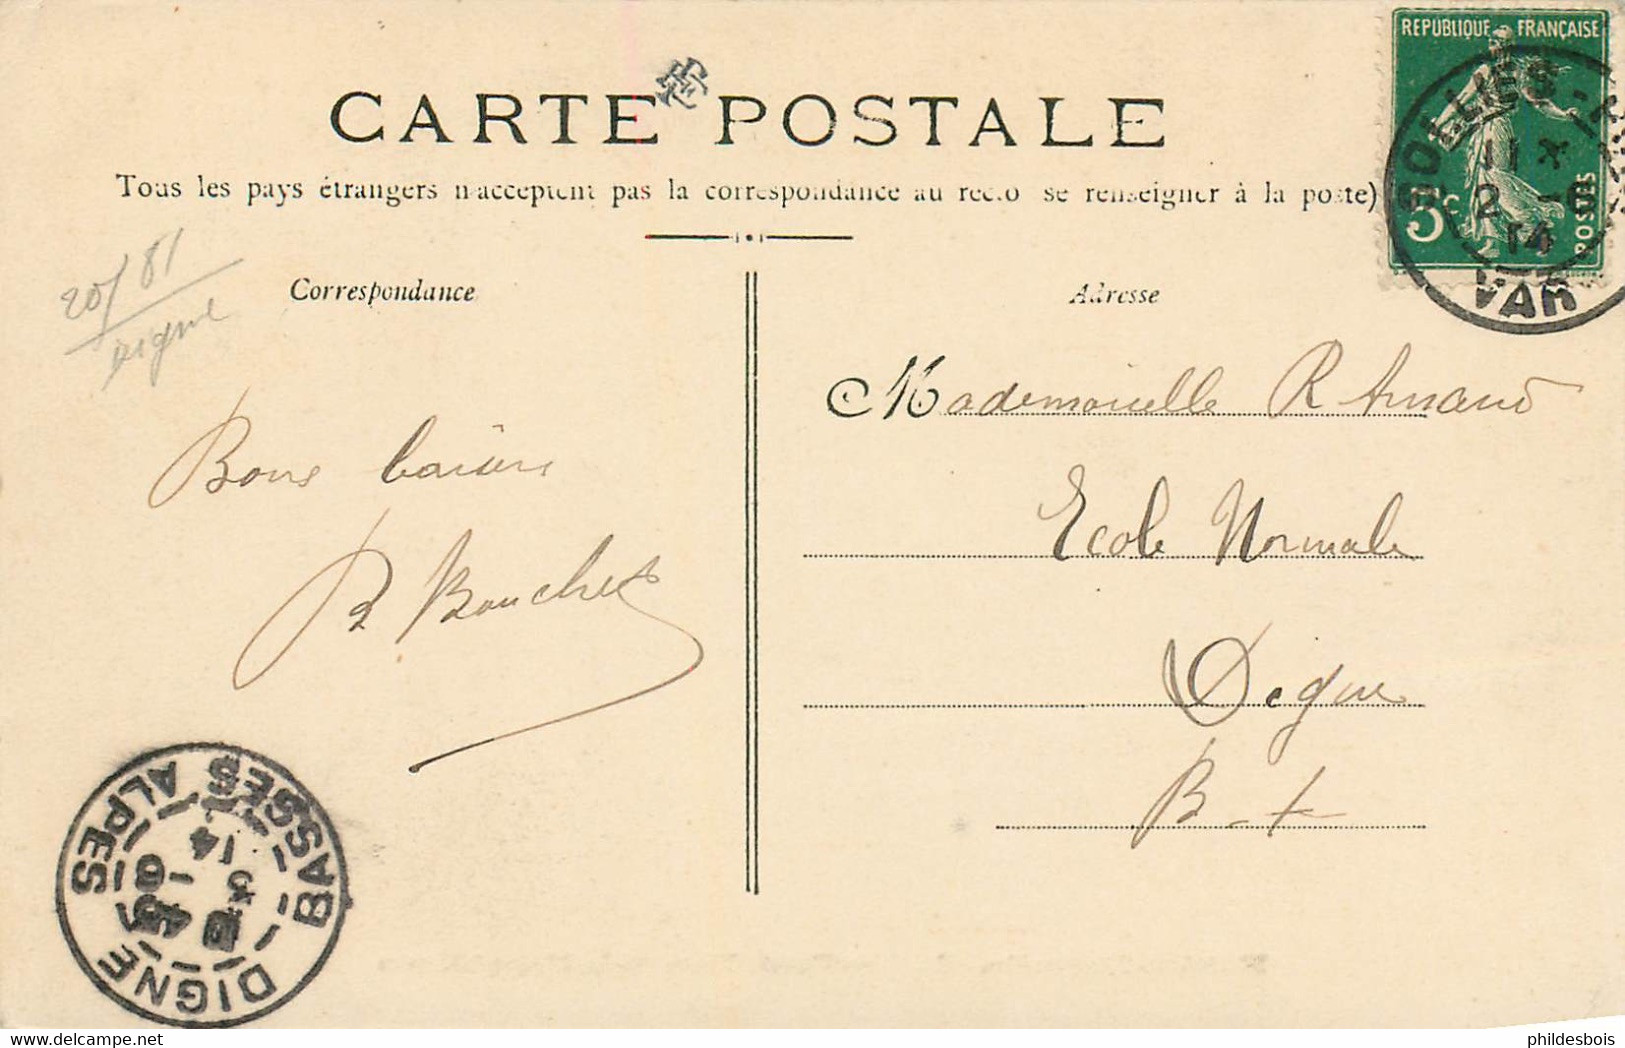 CARTE POSTALE
Tous les pays étrangers n'acceptent pas la correspondance au recto se renseigner à la poste)
REPUBLIQUE FRANÇAISE
5c POSTES
SOLLIES-
11
2 - 6
14
VAR
20/81
Digne
Correspondance
Adresse
Bons baisers
R Bouchet
Mademoiselle R Arnaud
Ecole Normale
Digne
B - A
DIGNE BASSES ALPES
14
phildesbois
www.delcampe.net